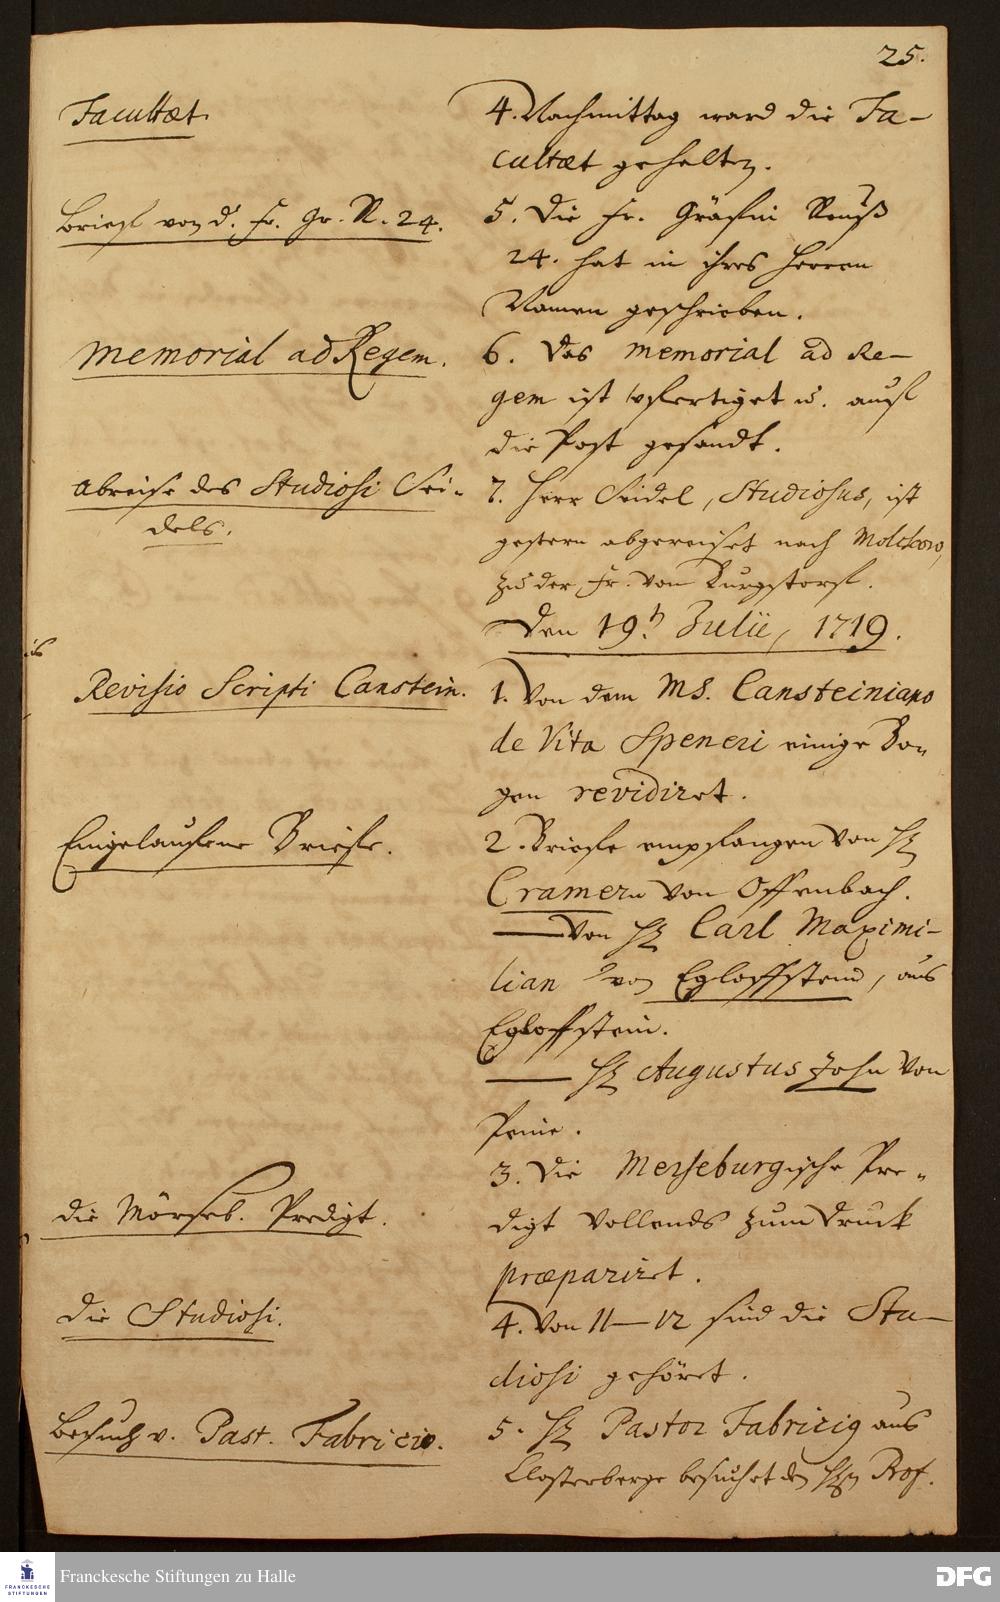 25.
Facultæt.
4. Nachmittag ward die Fa-
cultæt gehalten.
Brieff von d. Fr. Gr. R. 24.
5. Die Fr. Gräfin Reuß
24. hat in ihres Herren
Namen geschrieben.
Memorial ad Regem.
6. Das Memorial ad Re-
gem ist ausfertiget u. auff
die Post gesandt.
Abreise des Studiosi Sei-
dels.
7. Herr Seidel, Studiosus, ist
gestern abgereiset nach
zu der Fr. von
Den 19.h Julii, 1719.
Revisio Scripti Canstein.
1. Von dem MS. Cansteiniano
de Vita Speneri einige Bo-
gen revidiret.
Eingelauffene Brieffe.
2. Brieffe empfangen von H
Cramern von Offenbach.
— Von H Carl Maximi-
lian von Egloffstein, aus
Egloffstein.
— H Augustus John von
Penie.
die Mörseb. Predigt.
3. Die Merseburgische Pre-
digt vollends zum Druck
præpariret.
Die Studiosi.
4. Von 11–12 sind die Stu-
diosi gehöret.
Besuch v. Past. Fabricio.
5. H Pastor Fabricig aus
Closterberge besuchet den Hn Prof.
Franckesche Stiftungen zu Halle
FRANCKESCHE
STIFTUNGEN
DFG